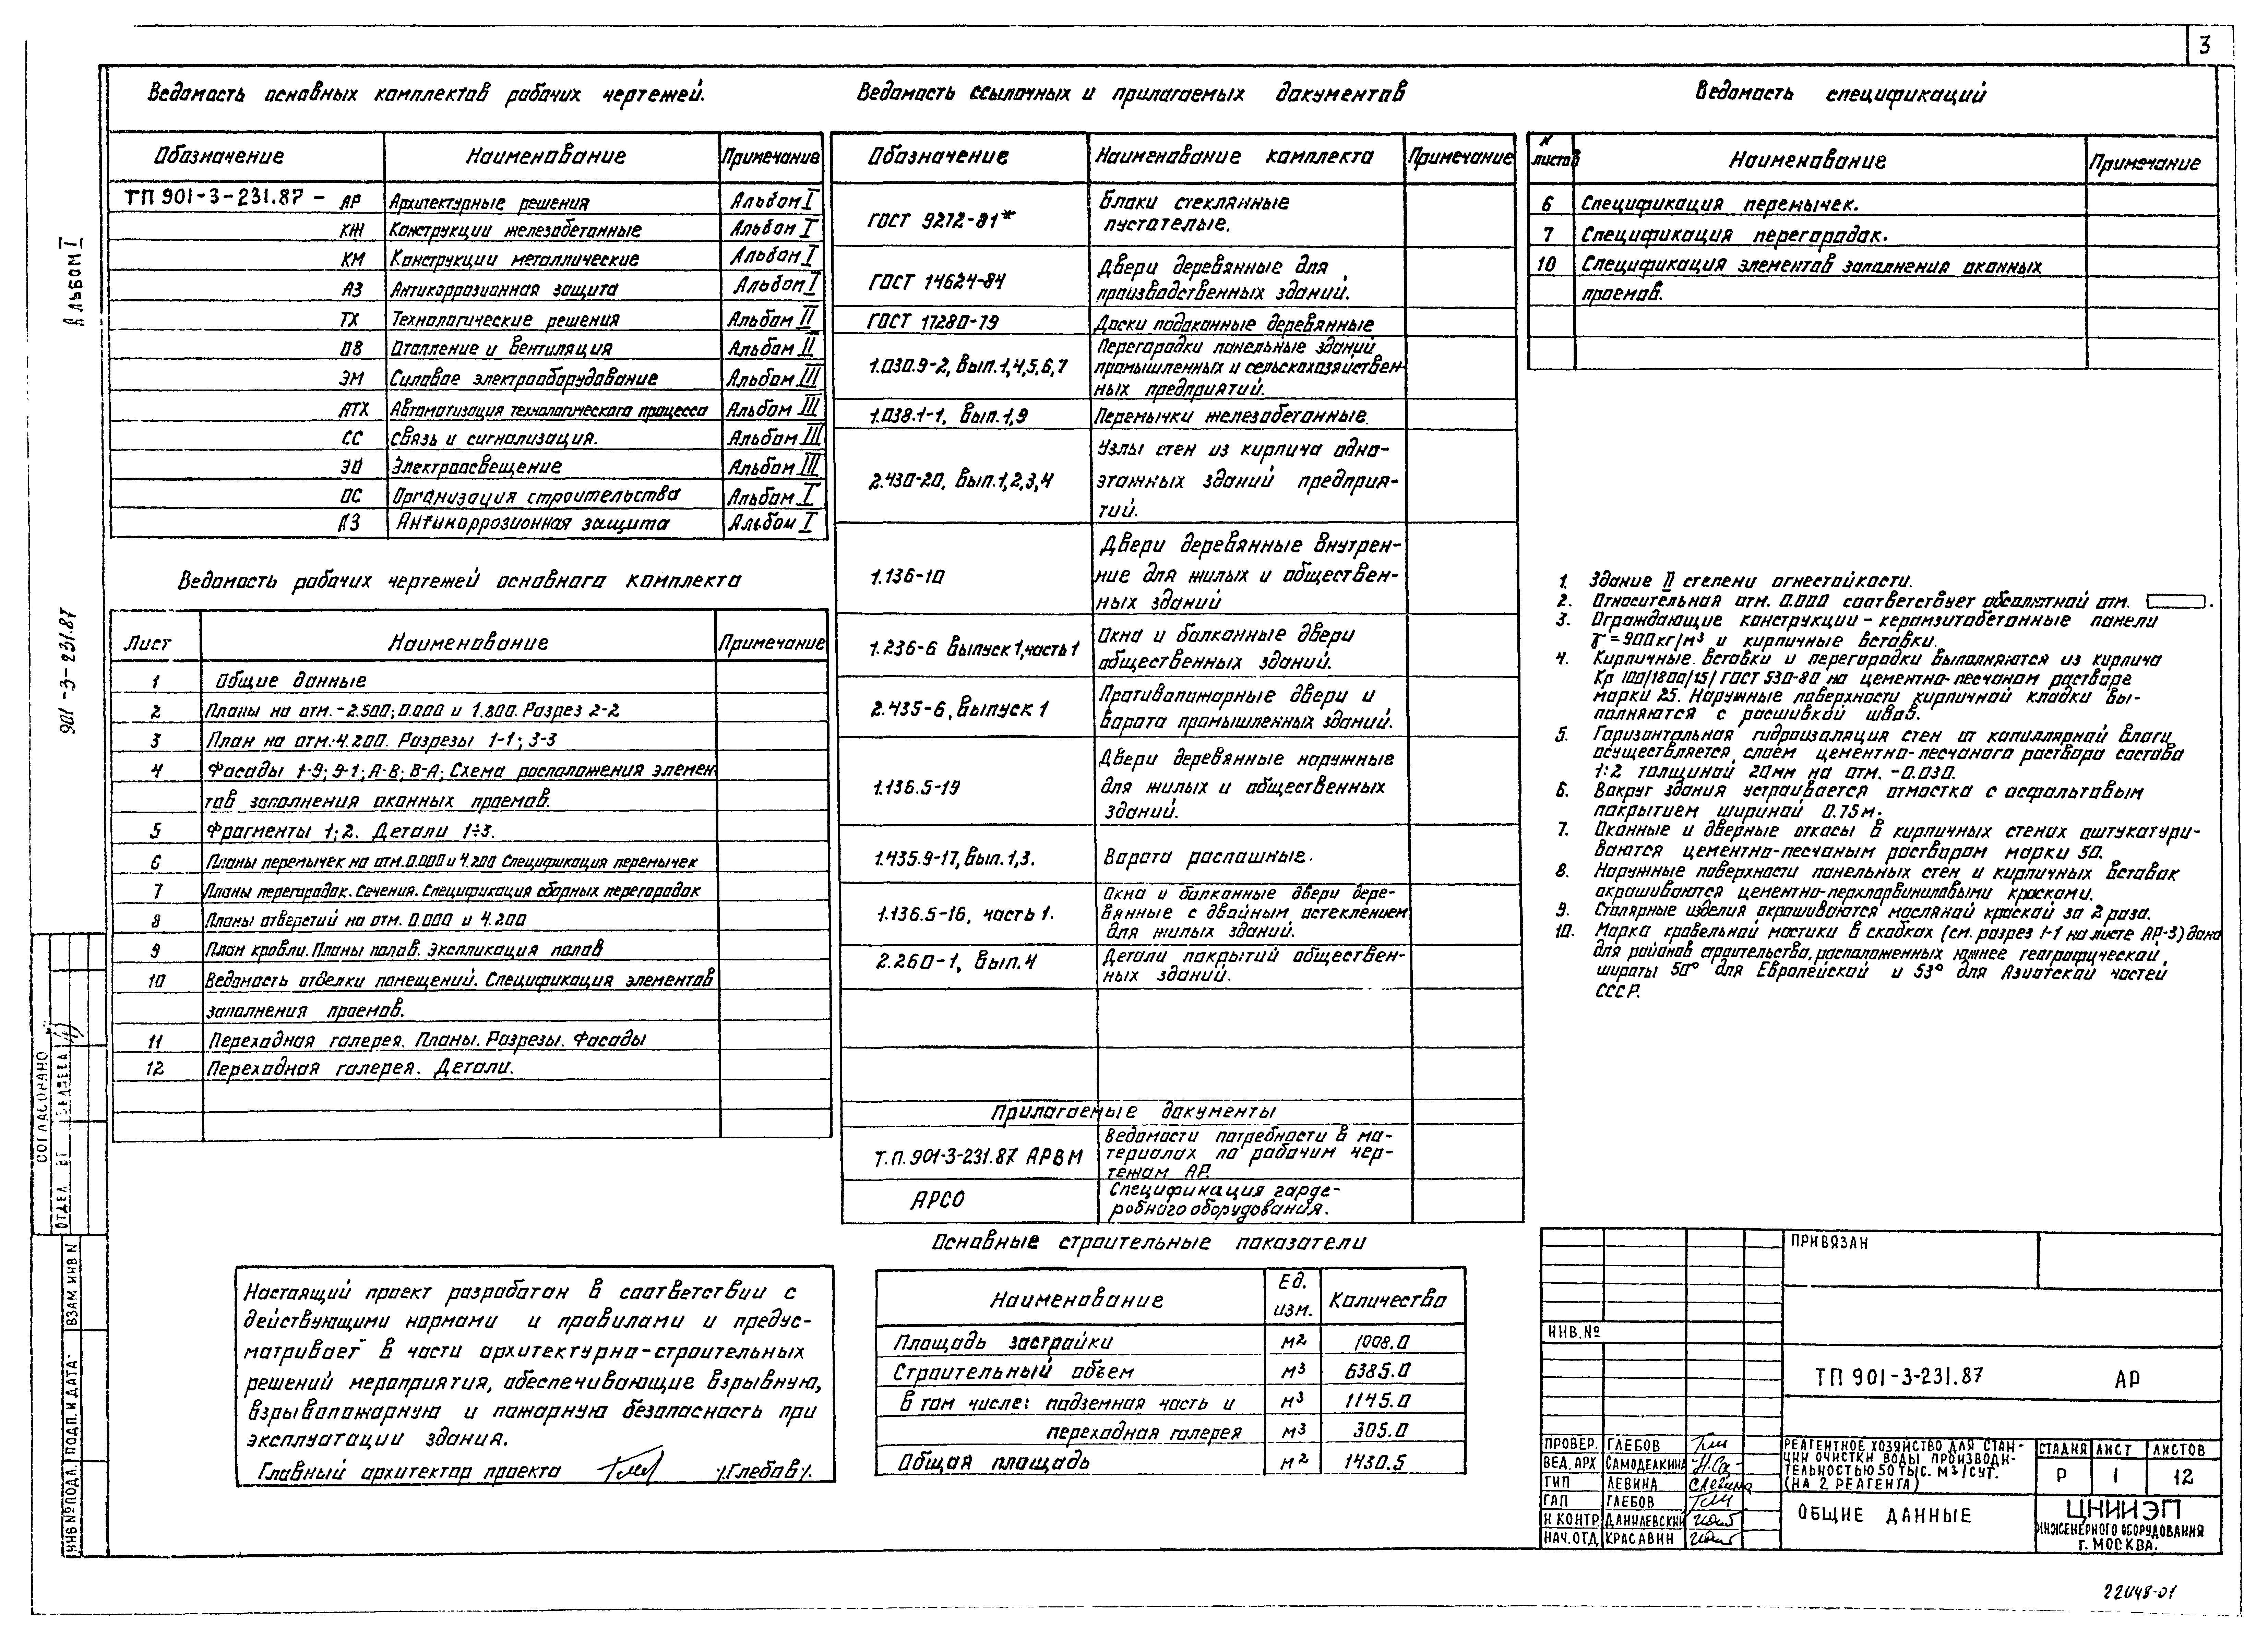 3
Ведомость основных комплектов рабочих чертежей.
Обозначение Наименование Примечание
ТП 901-3-231.87 - АР Архитектурные решения Альбом I
КЖ Конструкции железобетонные Альбом I
КМ Конструкции металлические Альбом I
АЗ Антикоррозионная защита Альбом I
ТХ Технологические решения Альбом II
ОВ Отопление и вентиляция Альбом II
ЭМ Силовое электрооборудование Альбом III
АТХ Автоматизация технологического процесса Альбом III
СС Связь и сигнализация. Альбом III
ЭО Электроосвещение Альбом III
ОС Организация строительства Альбом I
АЗ Антикоррозионная защита Альбом I
Ведомость рабочих чертежей основного комплекта
Лист Наименование Примечание
1 Общие данные
2 Планы на отм.-2.500; 0.000 и 1.800. Разрез 2-2
3 План на отм. 4.200. Разрезы 1-1; 3-3
4 Фасады 1-9; 9-1; А-В; В-А; Схема расположения элемен
тов заполнения оконных проемов.
5 Фрагменты 1; 2. Детали 1÷3.
6 Планы перемычек на отм. 0.000 и 4.200 Спецификация перемычек
7 Планы перегородок. Сечения. Спецификация сборных перегородок
8 Планы отверстий на отм. 0.000 и 4.200
9 План кровли. Планы полов. Экспликация полов
10 Ведомость отделки помещений. Спецификация элементов
заполнения проемов.
11 Переходная галерея. Планы. Разрезы. Фасады
12 Переходная галерея. Детали.
Настоящий проект разработан в соответствии с
действующими нормами и правилами и предус-
матривает в части архитектурно-строительных
решений мероприятия, обеспечивающие взрывную,
взрывопожарную и пожарную безопасность при
эксплуатации здания.
Главный архитектор проекта /Глебов/.
Ведомость ссылочных и прилагаемых документов
Обозначение Наименование комплекта Примечание
ГОСТ 9272-81* Блоки стеклянные
пустотелые.
ГОСТ 14624-84 Двери деревянные для
производственных зданий.
ГОСТ 17280-79 Доски подоконные деревянные
1.030.9-2, Вып. 1,4,5,6,7 Перегородки панельные зданий
промышленных и сельскохозяйствен-
ных предприятий.
1.038.1-1, Вып. 1,9 Перемычки железобетонные.
2.430-20, Вып. 1,2,3,4 Узлы стен из кирпича одно-
этажных зданий предприя-
тий.
1.136-10 Двери деревянные внутрен-
ние для жилых и обществен-
ных зданий
1.236-6 Выпуск 1, часть 1 Окна и балконные двери
общественных зданий.
2.435-6, Выпуск 1 Противопожарные двери и
ворота промышленных зданий.
1.136.5-19 Двери деревянные наружные
для жилых и общественных
зданий.
1.435.9-17, Вып. 1,3. Ворота распашные.
1.136.5-16, часть 1. Окна и балконные двери дере-
вянные с двойным остеклением
для жилых зданий.
2.260-1, Вып. 4 Детали покрытий обществен-
ных зданий.
Прилагаемые документы
Т.П. 901-3-231.87 АРВМ Ведомости потребности в ма-
териалах по рабочим чер-
тежам АР.
АРСО Спецификация гарде-
робного оборудования.
Основные строительные показатели
Наименование Ед. изм. Количество
Площадь застройки м2 1008.0
Строительный объем м3 6385.0
в том числе: подземная часть и м3 1145.0
переходная галерея м3 305.0
Общая площадь м2 1430.5
Ведомость спецификаций
N листов Наименование Примечание
6 Спецификация перемычек.
7 Спецификация перегородок.
10 Спецификация элементов заполнения оконных
проемов.
1. Здание II степени огнестойкости.
2. Относительная отм. 0.000 соответствует абсолютной отм. .
3. Ограждающие конструкции - керамзитобетонные панели
γ=900кг/м3 и кирпичные вставки.
4. Кирпичные вставки и перегородки выполняются из кирпича
Кр 100/1800/15/ ГОСТ 530-80 на цементно-песчаном растворе
марки 25. Наружные поверхности кирпичной кладки вы-
полняются с расшивкой швов.
5. Горизонтальная гидроизоляция стен от капиллярной влаги
осуществляется слоем цементно-песчаного раствора состава
1:2 толщиной 20мм на отм. -0.030.
6. Вокруг здания устраивается отмостка с асфальтовым
покрытием шириной 0.75м.
7. Оконные и дверные откосы в кирпичных стенах оштукатури-
ваются цементно-песчаным раствором марки 50.
8. Наружные поверхности панельных стен и кирпичных вставок
окрашиваются цементно-перхлорвиниловыми красками.
9. Столярные изделия окрашиваются масляной краской за 2 раза.
10. Марка кровельной мастики в скобках (см. разрез 1-1 на листе АР-3) дана
для районов строительства, расположенных южнее географической
широты 50° для Европейской и 53° для Азиатской частей
СССР.
ПРИВЯЗАН
ИНВ.№
ТП 901-3-231.87 АР
ПРОВЕР. ГЛЕБОВ
ВЕД.АРХ САМОДЕЛКИНА
ГИП ЛЕВИНА
ГАП ГЛЕБОВ
Н КОНТР ДАНИЛЕВСКИЙ
НАЧ.ОТД КРАСАВИН
РЕАГЕНТНОЕ ХОЗЯЙСТВО ДЛЯ СТАН-
ЦИИ ОЧИСТКИ ВОДЫ ПРОИЗВОДИ-
ТЕЛЬНОСТЬЮ 50 ТЫС. М3/СУТ.
(НА 2 РЕАГЕНТА)
СТАДИЯ ЛИСТ ЛИСТОВ
Р 1 12
ОБЩИЕ ДАННЫЕ
ЦНИИЭП
ИНЖЕНЕРНОГО ОБОРУДОВАНИЯ
Г. МОСКВА.
22048-01
Альбом I
901-3-231.87
СОГЛАСОВАНО
ОТДЕЛ ВГ БЕЛЯЕВА
ВЗАМ ИНВ N
ПОДП. И ДАТА
ИНВ № ПОДЛ.